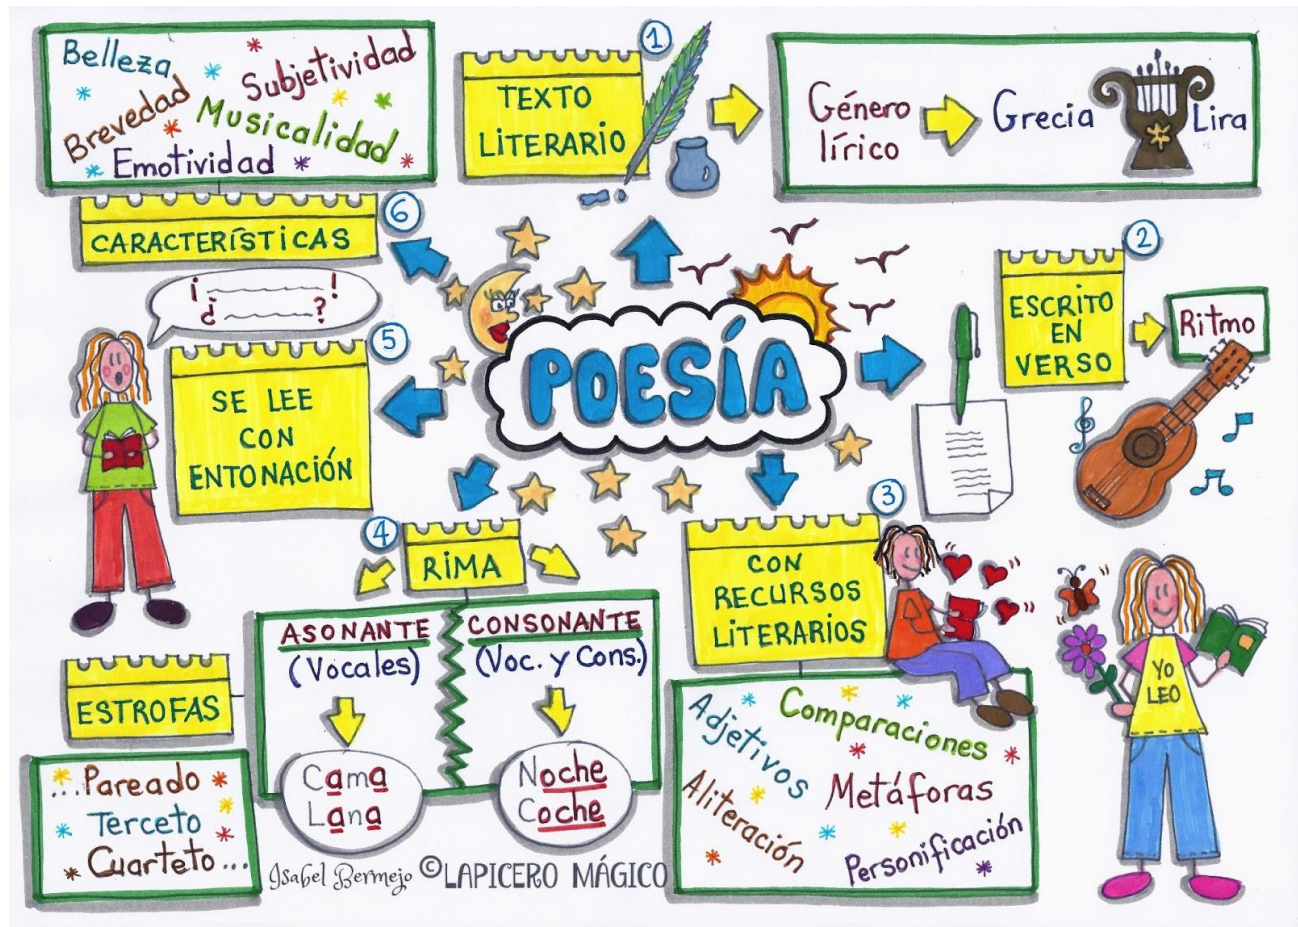 POESÍA
1
TEXTO
LITERARIO
Género
lírico
Grecia
Lira
2
ESCRITO
EN
VERSO
Ritmo
3
CON
RECURSOS
LITERARIOS
Adjetivos
Comparaciones
Metáforas
Aliteración
Personificación
YO
LEO
4
RIMA
ASONANTE
(Vocales)
Cama
Lana
CONSONANTE
(Voc. y Cons.)
Noche
Coche
ESTROFAS
...Pareado
Terceto
Cuarteto...
5
SE LEE
CON
ENTONACIÓN
¡ !
¿ ?
6
CARACTERÍSTICAS
Belleza
Subjetividad
Brevedad
Musicalidad
Emotividad
Isabel Bermejo ©LAPICERO MÁGICO